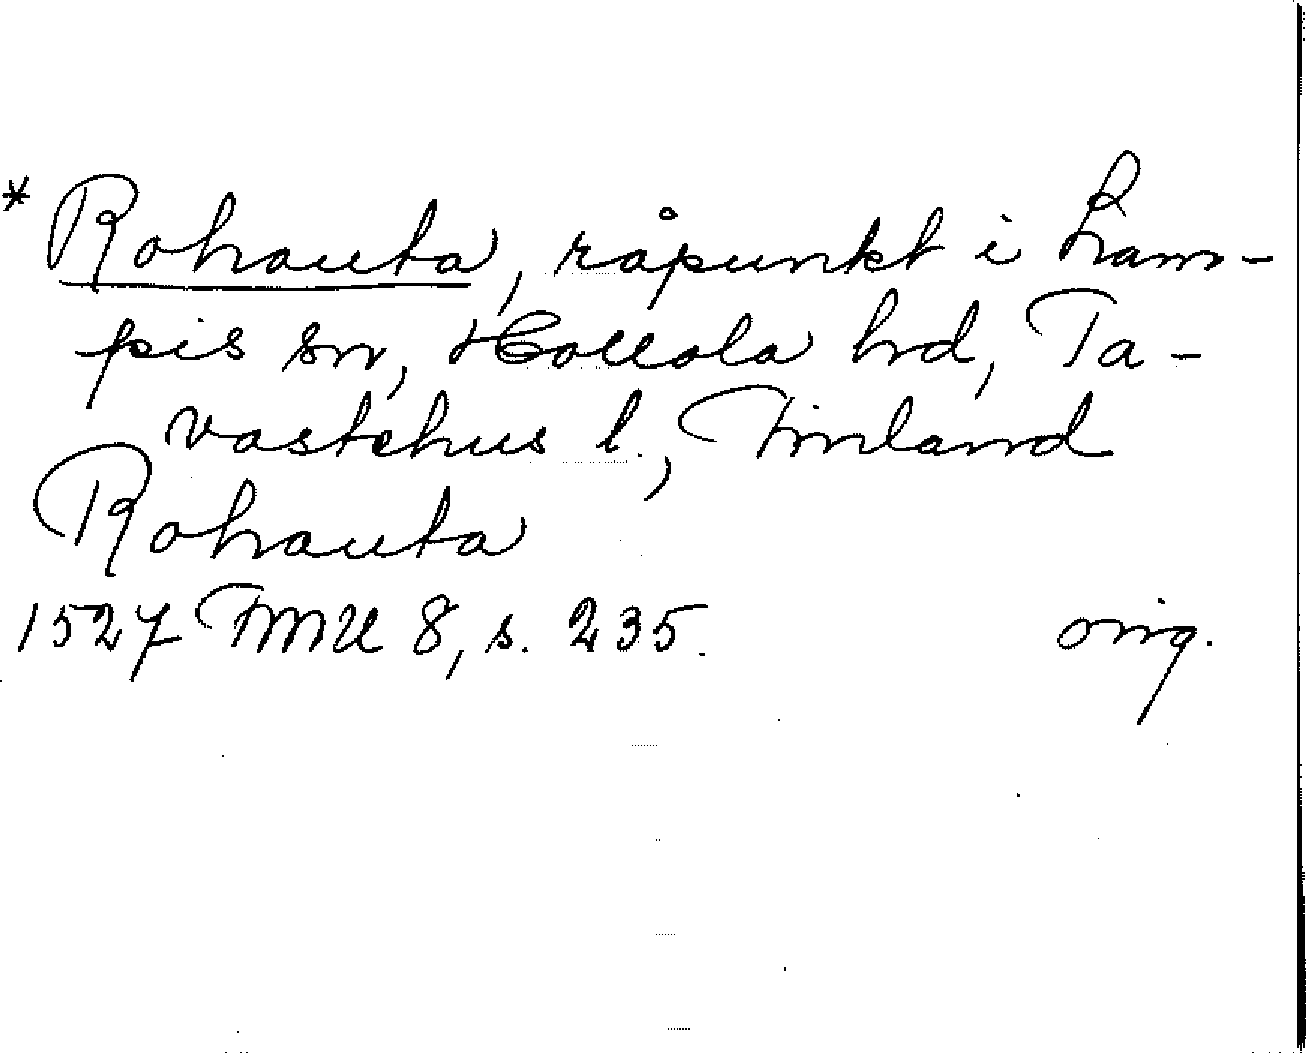 * Rohauta, råpunkt i Lam-
pis sn, Hollola hd, Ta-
vastehus l., Finland
Rohauta
1527 FMU 8, s. 235. orig.